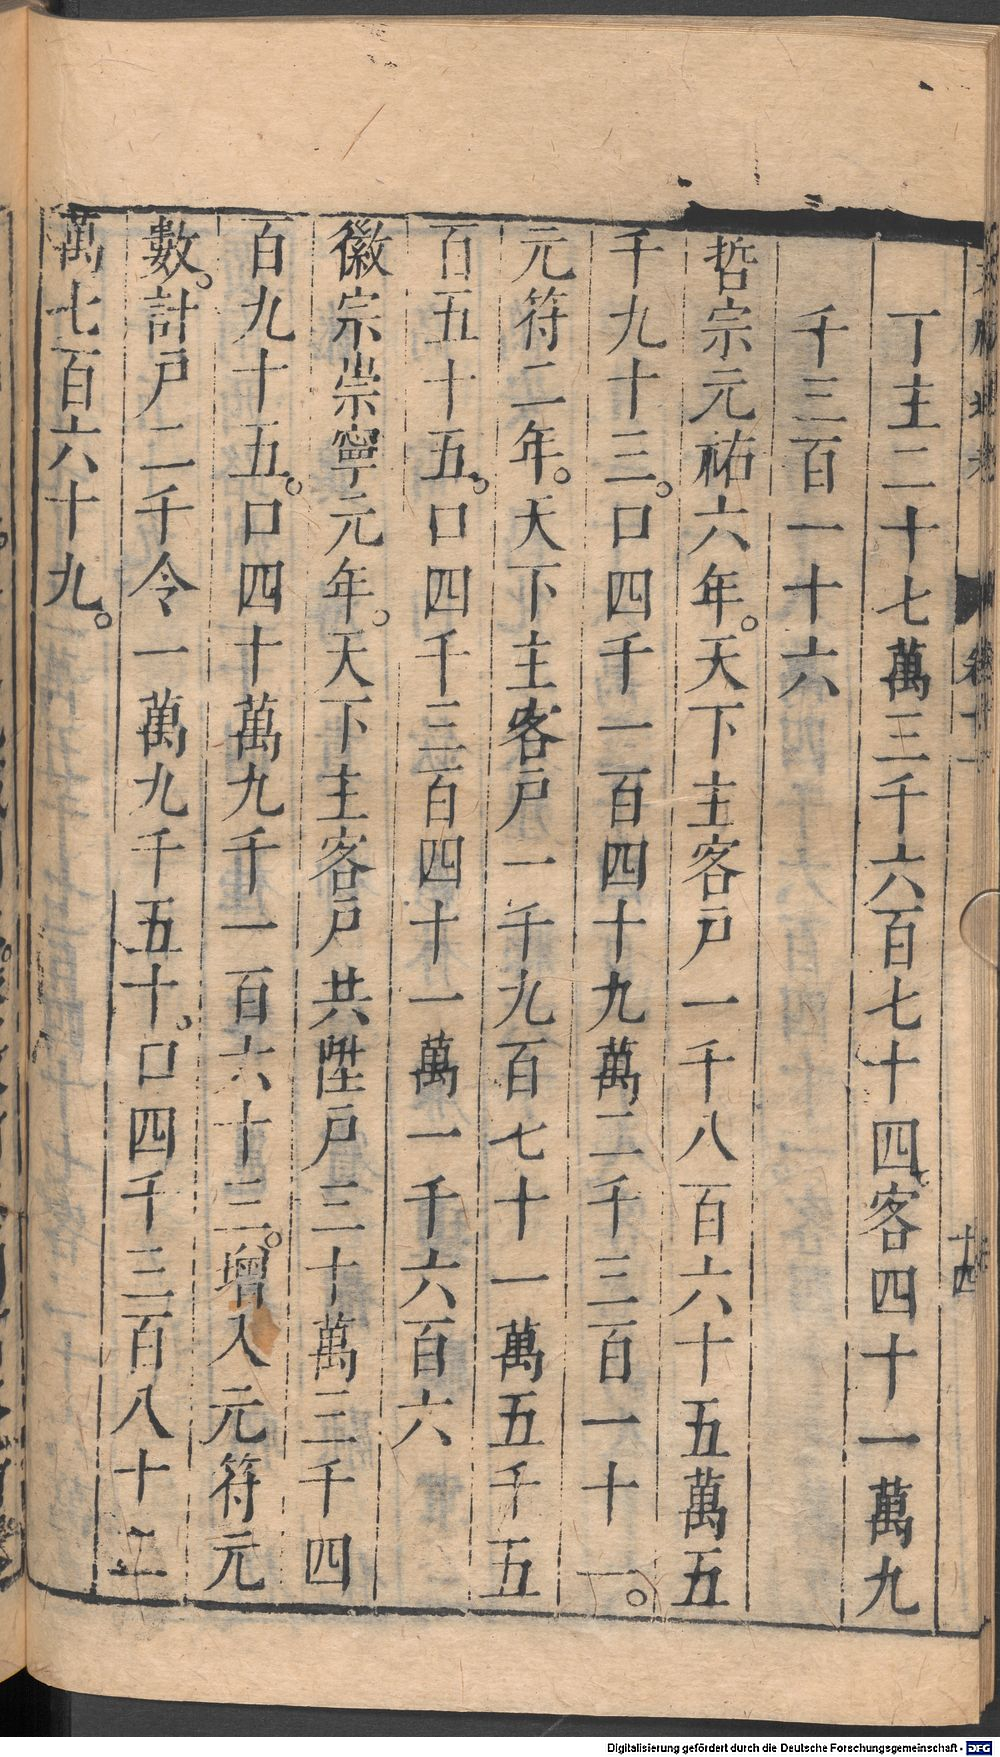 丁主二十七萬三千六百七十四客四十一萬九
千三百一十六
哲宗元祐六年。天下主客戶一千八百六十五萬五
千九十三。口四千一百四十九萬二千三百一十一。
元符二年。天下主客戶一千九百七十一萬五千五
百五十五。口四千三百四十一萬一千六百六
徽宗崇寧元年。天下主客戶共陞戶三十萬三千四
百九十五。口四十萬九千一百六十三。增入元符元
數。計戶二千令一萬九千五十。口四千三百八十二
萬七百六十九。
十四
Digitalisierung gefördert durch die Deutsche Forschungsgemeinschaft - DFG